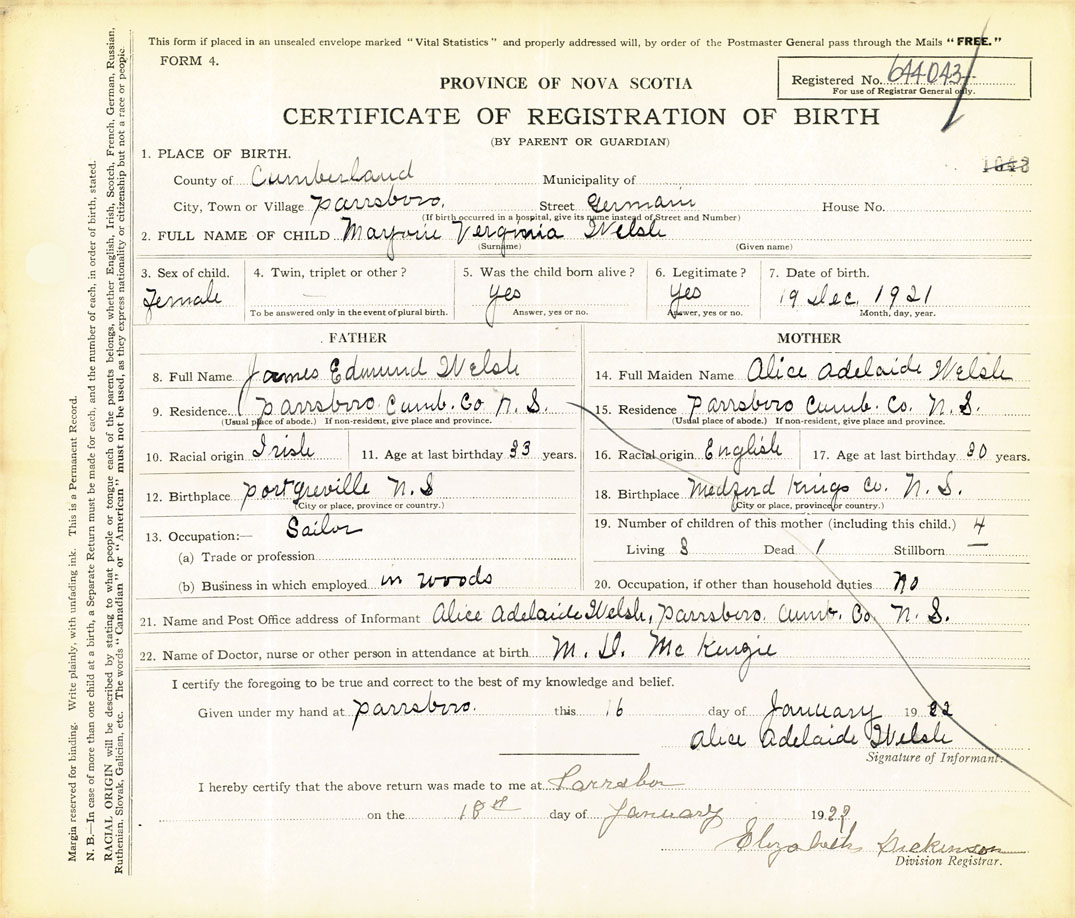 This form if placed in an unsealed envelope marked "Vital Statistics" and properly addressed will, by order of the Postmaster General pass through the Mails "FREE."
FORM 4.
Registered No. 644043
For use of Registrar General only.
PROVINCE OF NOVA SCOTIA
CERTIFICATE OF REGISTRATION OF BIRTH
(BY PARENT OR GUARDIAN)
1. PLACE OF BIRTH.
County of Cumberland Municipality of
City, Town or Village Parrsboro. Street Germain House No.
(If birth occurred in a hospital, give its name instead of Street and Number)
2. FULL NAME OF CHILD Marjorie Verginia Welsh
(Surname) (Given name)
3. Sex of child. 4. Twin, triplet or other? 5. Was the child born alive? 6. Legitimate? 7. Date of birth.
Female — Yes Yes 19 Dec. 1921
To be answered only in the event of plural birth. Answer, yes or no. Answer, yes or no. Month, day, year.
FATHER
8. Full Name James Edmund Welsh
9. Residence Parrsboro Cumb. Co N. S.
(Usual place of abode.) If non-resident, give place and province.
10. Racial origin Irish 11. Age at last birthday 33 years.
12. Birthplace Portgreville N. S
(City or place, province or country.)
13. Occupation:— Sailor
(a) Trade or profession
(b) Business in which employed in woods
MOTHER
14. Full Maiden Name Alice Adelaide Welsh
15. Residence Parrsboro Cumb. Co. N. S.
(Usual place of abode.) If non-resident, give place and province.
16. Racial origin English 17. Age at last birthday 30 years.
18. Birthplace Medford Kings Co. N. S.
(City or place, province or country.)
19. Number of children of this mother (including this child.) 4
Living 3 Dead 1 Stillborn
20. Occupation, if other than household duties no
21. Name and Post Office address of Informant Alice Adelaide Welsh, Parrsboro. Cumb. Co. N. S.
22. Name of Doctor, nurse or other person in attendance at birth M. D. McKenzie
I certify the foregoing to be true and correct to the best of my knowledge and belief.
Given under my hand at Parrsboro. this 16 day of January 1922
Alice Adelaide Welsh
Signature of Informant.
I hereby certify that the above return was made to me at Parrsboro
on the 18th day of January 1922
Elizabeth Dickinson
Division Registrar.
Margin reserved for binding. Write plainly, with unfading ink. This is a Permanent Record.
N. B.—In case of more than one child at a birth, a Separate Return must be made for each, and the number of each, in order of birth, stated.
RACIAL ORIGIN will be described by stating to what people or tongue each of the parents belongs, whether English, Irish, Scotch, French, German, Russian,
Ruthenian, Slovak, Galician, etc. The words "Canadian" or "American" must not be used, as they express nationality or citizenship but not a race or people.